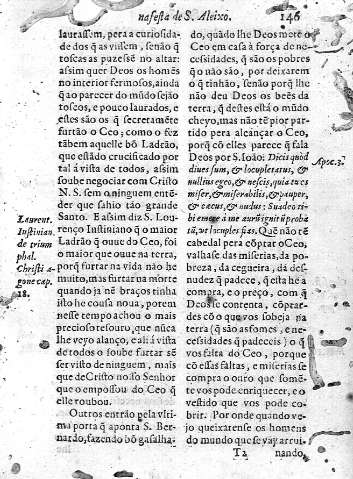 na festa de S. Aleixo. 146
laurassem, pera a curiosida-
de dos q̃ as vissem, senão q̃
toscas as puzessẽ no altar:
assim quer Deos os homẽs
no interior fermosos, ainda
q̃ ao parecer do mũdo sejão
toscos, e pouco laurados, e
estes são os q̃ secretamẽte
furtão o Ceo; como o fez
tãbem aquelle bõ Ladrão,
que estãdo crucificado por
tal á vista de todos, assim
soube negociar com Cristo
N. S. sem o ninguem entẽ-
der que sahio tão grande
Santo. E assim diz S. Lou-
renço Iustiniano q̃ o maior
Ladrão q̃ ouue do Ceo, foi
o maior que ouue na terra,
porq̃ furtar na vida não he
muito, mas furtar na morte
quando ja nẽ braços tinha
isto he cousa noua, porem
nesse tempo achou o mais
precioso tesouro, que nũca
lhe veyo alanço, e ali á vista
de todos o soube furtar sẽ
ser visto de ninguem, mais
que de Cristo nosso Senhor
que o empossou do Ceo que
elle roubou.
Outros entrão pela vlti-
ma porta q̃ aponta S. Ber-
nardo, fazendo bõ gasalha-
Laurent.
Iustinian.
de trium
phal.
Christi a-
gone cap.
18.
do, quãdo lhe Deos mete o
Ceo em casa à força de ne-
cessidades, q̃ são os pobres
q̃ o não são, por deixarem
o q̃ tinhão, senão porq̃ lhe
não deu Deos os beẽs da
terra, q̃ destes està o mũdo
cheyo, mas não tẽ pior par-
tido pera alcançar o Ceo,
porq̃ cõ elles parece q̃ fala
Deos por S. Ioão: Dicis quòd
diues sum, & locupletatus, &
nullius egeo, & nescis, quia tu es
miser, & miserabilis, & pauper,
& cæcus, & nudus: Suadeo ti-
bi emere à me aurũ ignitũ proba
tũ, vt locuples fias. Quẽ não tẽ
cabedal pera cõprar o Ceo,
valhase das miserias, da po-
breza, da cegueira, da des-
nudez q̃ padece, q̃ esta he a
compra, e o preço, com q̃
Deos se contenta, cõprae-
des cõ o que vos sobeja na
terra (q̃ são as fomes, e ne-
cessidades q̃ padeceis) o q̃
vos falta do Ceo, porque
cõ essas faltas, e miserias se
compra o ouro que somẽ-
te vos pode enriquecer, e o
vestido que vos pode co-
brir. Por onde quando ve-
jo queixarense os homens
do mundo que se vay arrui-
Apoc. 3.
Ta nando,